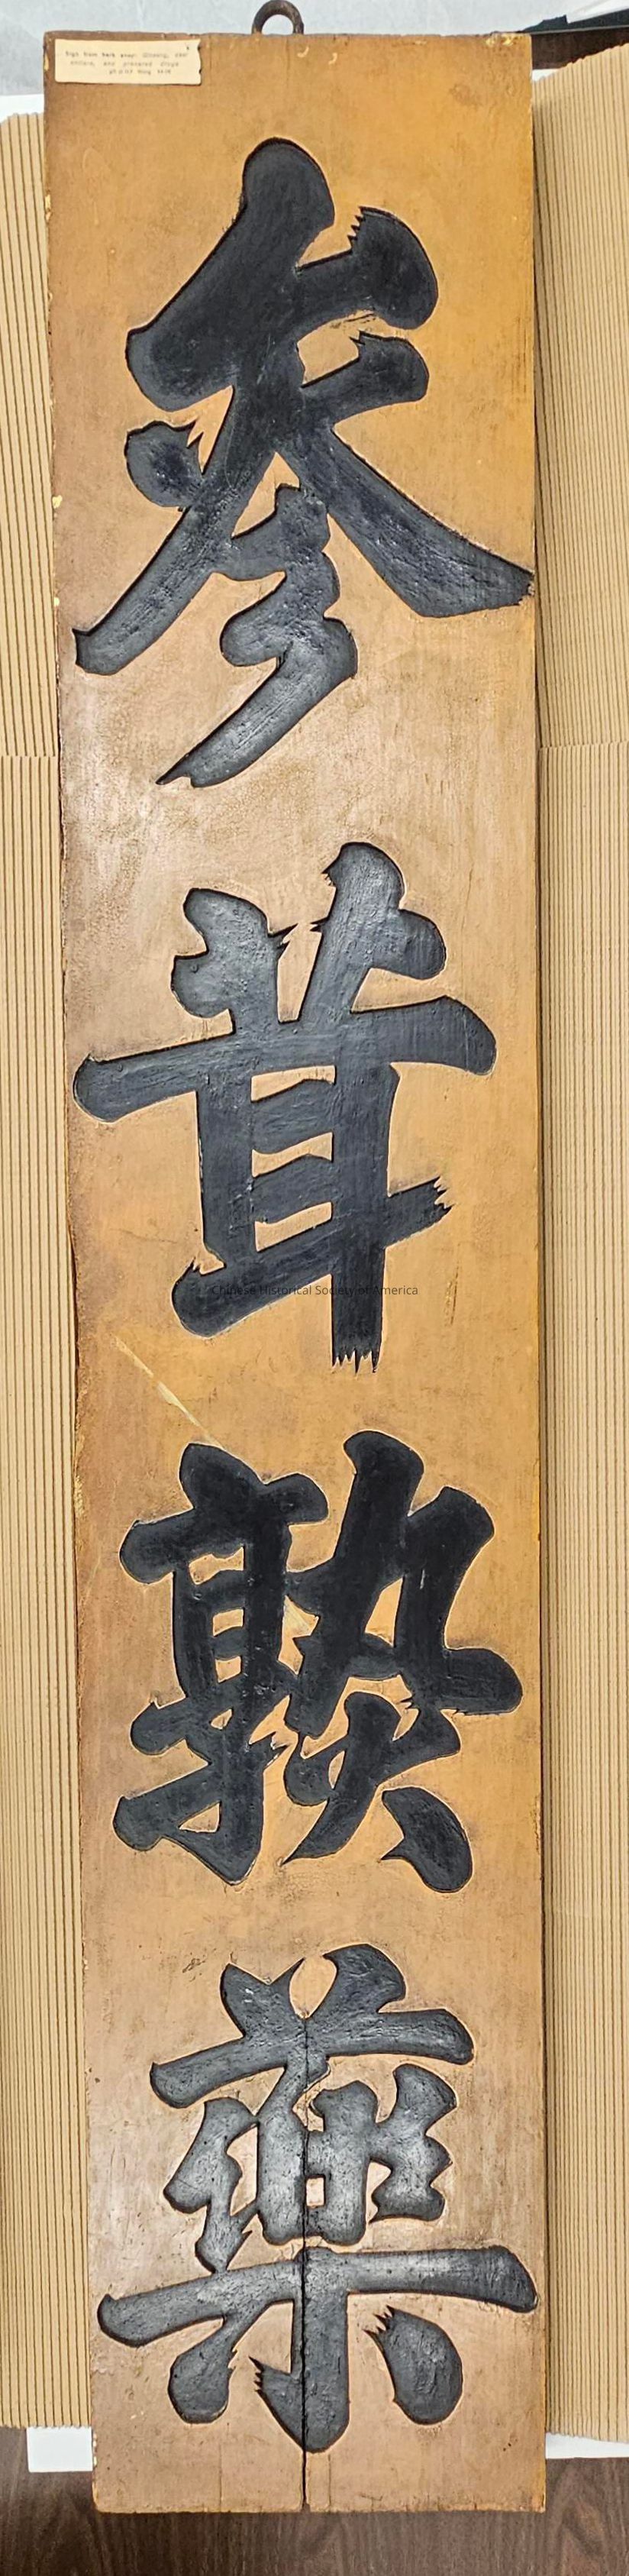 Sign from herb shop: Ginseng, deer
antlers, and prepared drugs
參茸熟藥
Chinese Historical Society of America